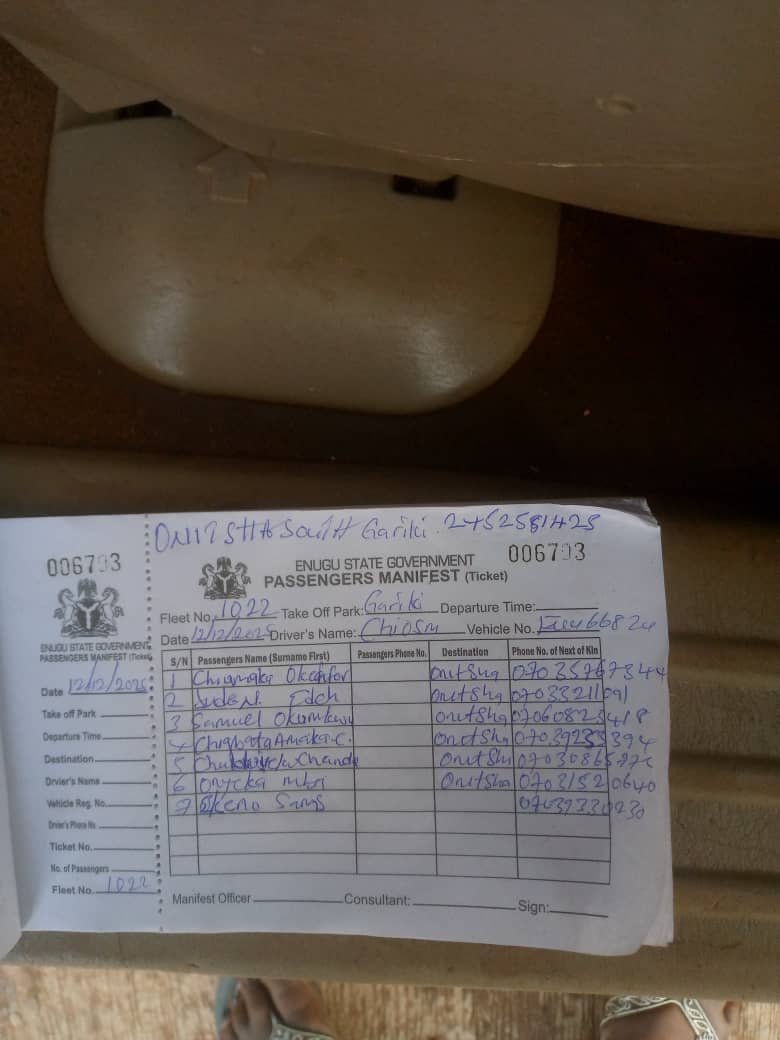 ONITSHA South Gariki. 2452581425
006793
ENUGU STATE GOVERNMENT
PASSENGERS MANIFEST (Ticket)
Date 12/12/2025
Take off Park
Departure Time
Destination
Drvier's Name
Vehicle Reg. No.
Driver's Phone No
Ticket No.
No. of Passengers
Fleet No. 1022
ENUGU STATE GOVERNMENT 006793
PASSENGERS MANIFEST (Ticket)
Fleet No. 1022 Take Off Park: Gariki Departure Time:
Date 12/12/2025 Driver's Name: Vehicle No.
S/N Passengers Name (Surname First) Passengers Phone No. Destination Phone No. of Next of Kin
1 Chiamaka Okafor Onitsha 07035767344
2 Onitsha 07033211091
3 Samuel Onitsha 07060823418
4 Amaka C. Onitsha 07039233394
5 Onitsha
6 Onyeka Onitsha 07031520640
7 Sams 07039330230
Manifest Officer Consultant: Sign: